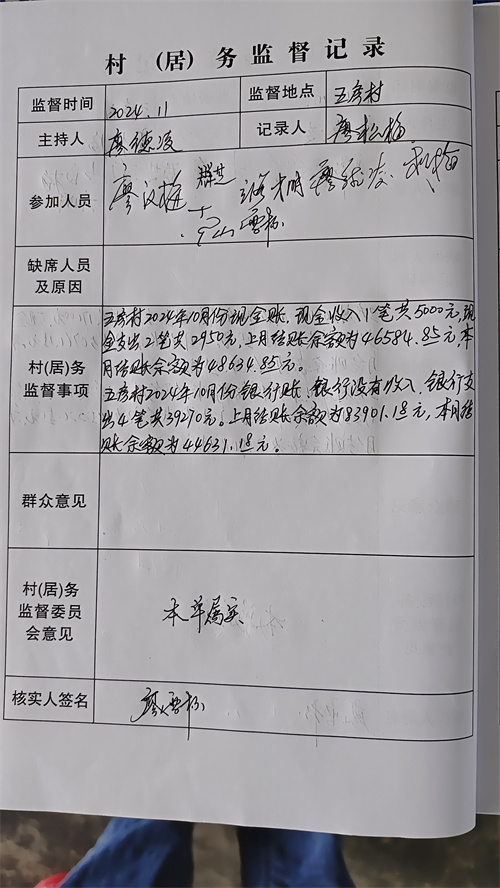 村 (居) 务 监 督 记 录
监督时间 2024.11 监督地点 五房村
主持人 廖德凌 记录人 廖松梅
参加人员 廖汉梅
缺席人员
及原因
五房村2024年10月份现金账、现金收入1笔共5000元,现
金支出2笔共2950元,上月结账余额为46584.85元,本
村(居)务
监督事项
月结账余额为48634.85元。
五房村2024年10月份银行账、银行没有收入、银行支
出4笔共39270元。上月结账余额为83901.18元,本月结
账余额为44631.18元。
群众意见
村(居)务
监督委员
会意见
本单属实
核实人签名